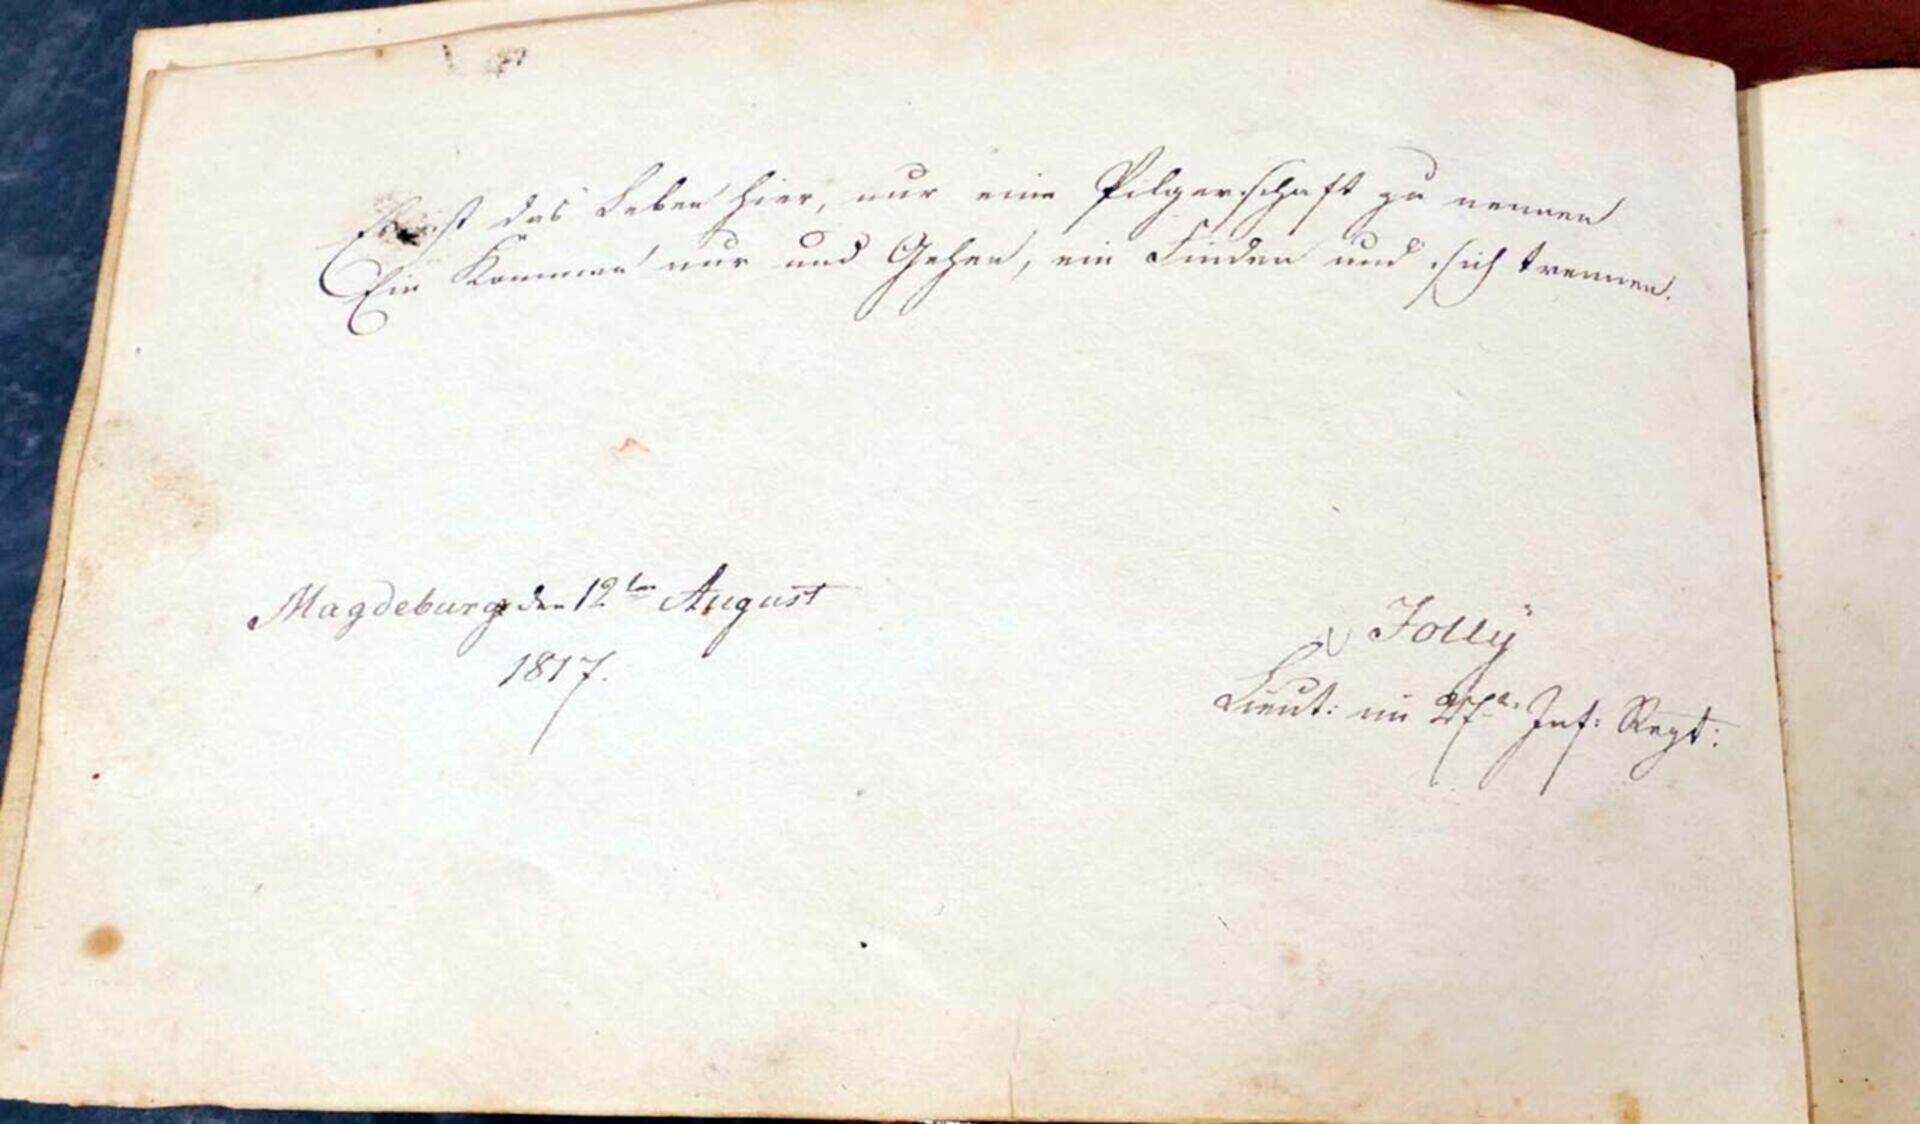 Es ist das Leben hier, nur eine Pilgerschaft zu nennen
Ein Kommen nur und Gehen, ein Finden und sich trennen.
Magdeburg den 12ten August
1817.
Jolly
Lieut: im 27n. Inf: Regt: